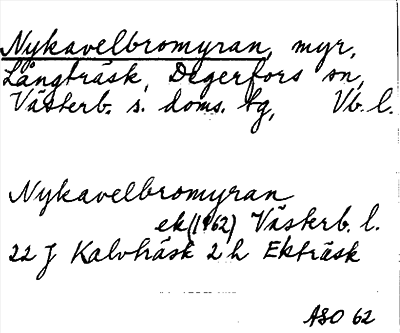 Nykavelbromyran, myr,
Långträsk, Degerfors sn,
Västerb. s. doms. bg, Vb. l.
Nykavelbromyran
ek (1962) Västerb. l.
22 J Kalvträsk 2 h Ekträsk
ASO 62